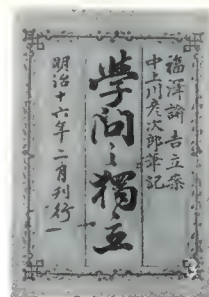 福澤諭吉立案
中上川彦次郎筆記
學問之獨立
明治十六年二月刊行